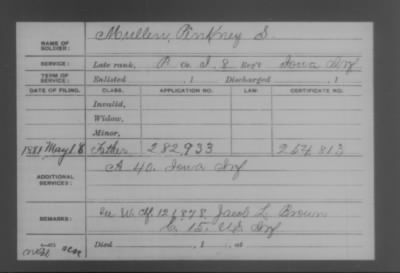 NAME OF SOLDIER: Mullen, Pinkney S.
SERVICE: Late rank, P. Co. I, 8 Reg't Iowa Inf
TERM OF SERVICE: Enlisted , 1 Discharged , 1
DATE OF FILING. CLASS. APPLICATION NO. LAW. CERTIFICATE NO.
Invalid,
Widow,
Minor,
1881 May Father 282,933 254813
ADDITIONAL SERVICES: A 40. Iowa Inf
REMARKS: W. Cf. 126878 Jacob L. Brown
C. 15. U.S. Inf
Died , 1 , at